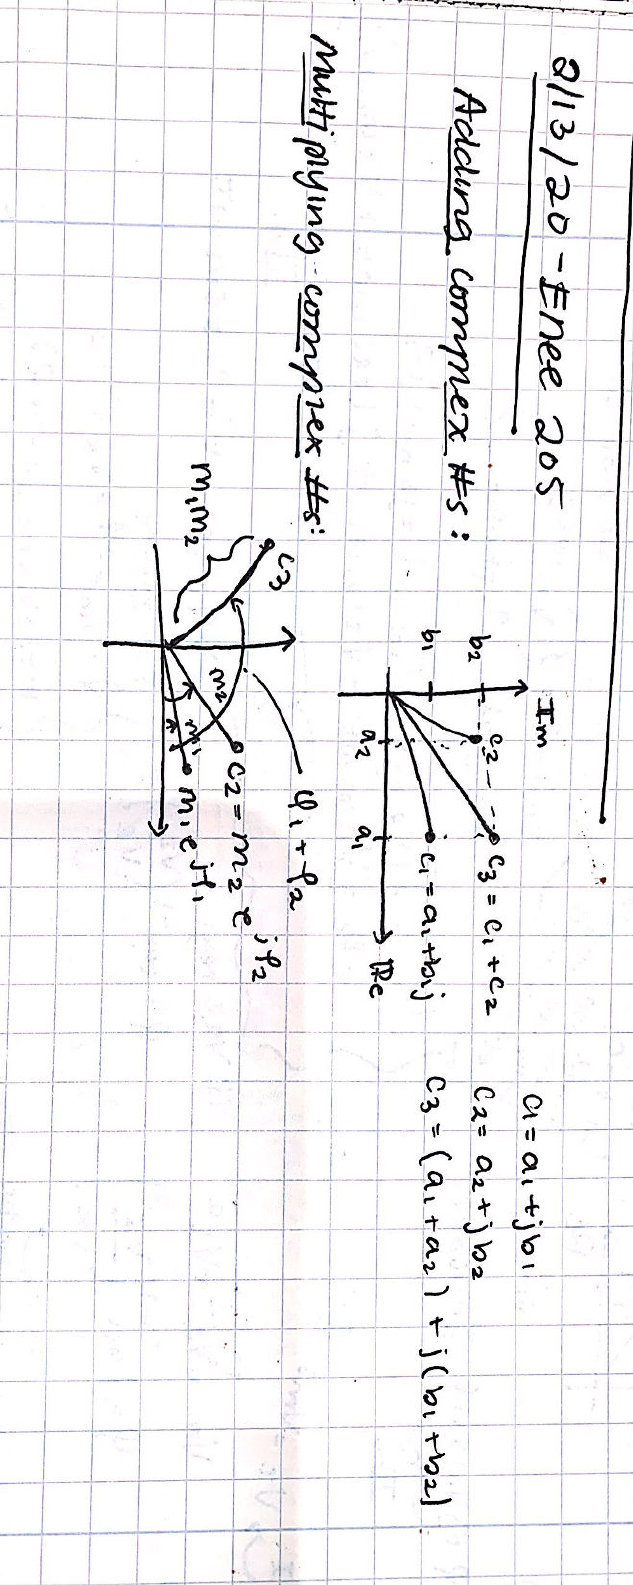 2/13/20 - Enee 205
Adding complex #s:
Im
b2
b1
c2
c3 = c1 + c2
c1 = a1 + b1j
a2
a1
Re
c1 = a1 + jb1
c2 = a2 + jb2
c3 = (a1 + a2) + j(b1 + b2)
Multiplying complex #s:
φ1 + φ2
c3
m1m2
m2
c2 = m2 e^jφ2
m1
m1 e^jφ1